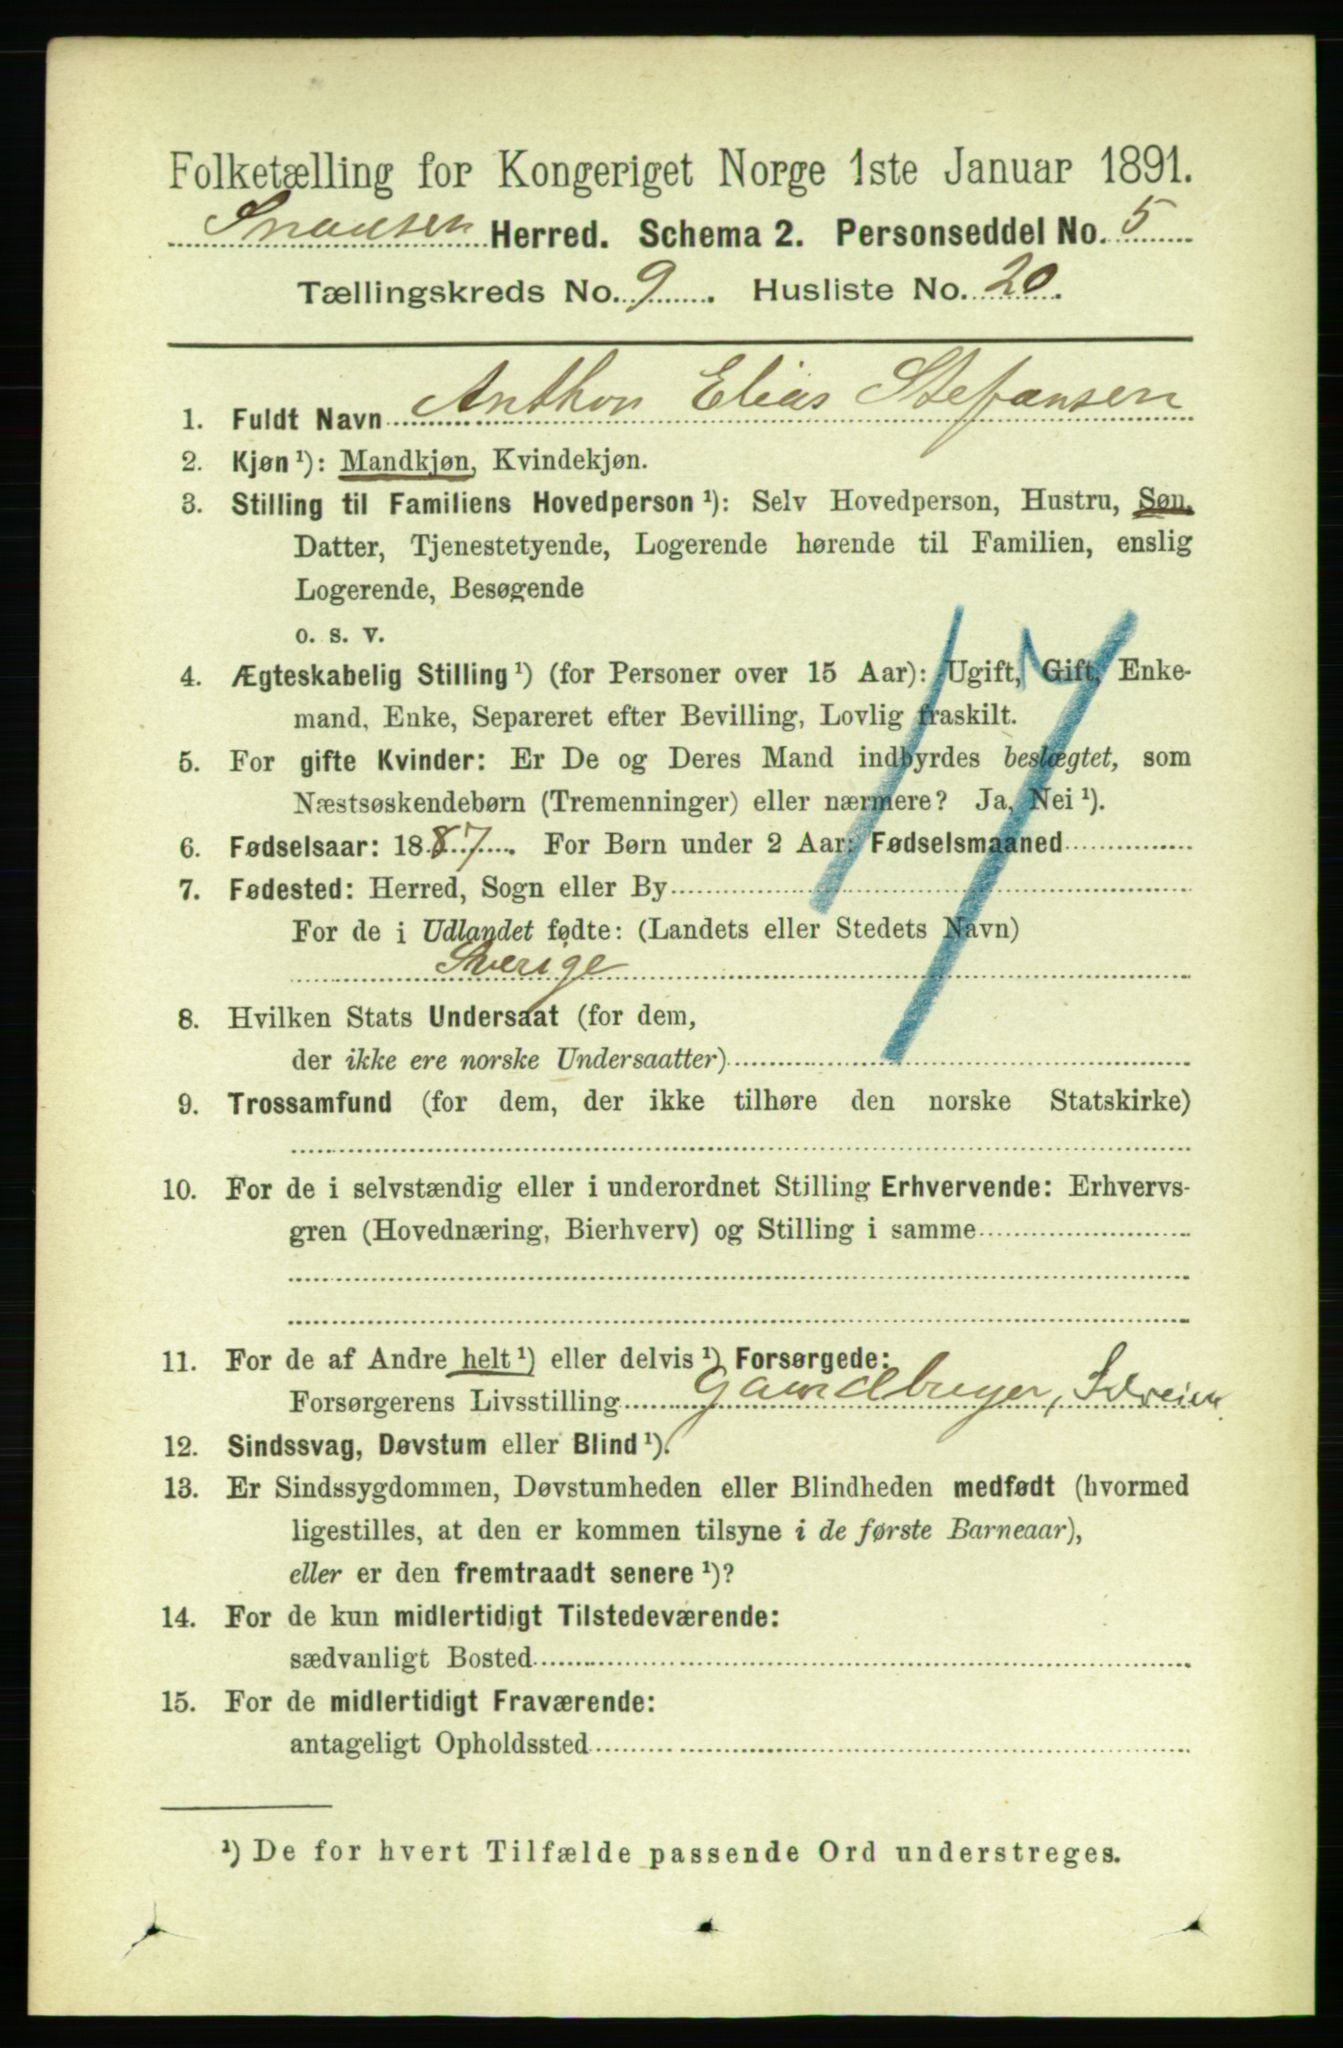 Folketælling for Kongeriget Norge 1ste Januar 1891.
Snaasen Herred. Schema 2. Personseddel No. 5
Tællingskreds No. 9. Husliste No. 20.
1. Fuldt Navn Anthon Elias Stefansen
2. Kjøn ¹): Mandkjøn, Kvindekjøn.
3. Stilling til Familiens Hovedperson ¹): Selv Hovedperson, Hustru, Søn,
Datter, Tjenestetyende, Logerende hørende til Familien, enslig
Logerende, Besøgende
o. s. v.
4. Ægteskabelig Stilling ¹) (for Personer over 15 Aar): Ugift, Gift, Enke-
mand, Enke, Separeret efter Bevilling, Lovlig fraskilt.
5. For gifte Kvinder: Er De og Deres Mand indbyrdes beslægtet, som
Næstsøskendebørn (Tremenninger) eller nærmere? Ja, Nei ¹).
6. Fødselsaar: 1887. For Børn under 2 Aar: Fødselsmaaned
7. Fødested: Herred, Sogn eller By
For de i Udlandet fødte: (Landets eller Stedets Navn)
Sverige
8. Hvilken Stats Undersaat (for dem,
der ikke ere norske Undersaatter)
9. Trossamfund (for dem, der ikke tilhøre den norske Statskirke)
10. For de i selvstændig eller i underordnet Stilling Erhvervende: Erhvervs-
gren (Hovednæring, Bierhverv) og Stilling i samme
11. For de af Andre helt ¹) eller delvis ¹) Forsørgede:
Forsørgerens Livsstilling Gaardbruger,
12. Sindssvag, Døvstum eller Blind ¹).
13. Er Sindssygdommen, Døvstumheden eller Blindheden medfødt (hvormed
ligestilles, at den er kommen tilsyne i de første Barneaar),
eller er den fremtraadt senere ¹)?
14. For de kun midlertidigt Tilstedeværende:
sædvanligt Bosted
15. For de midlertidigt Fraværende:
antageligt Opholdssted
¹) De for hvert Tilfælde passende Ord understreges.